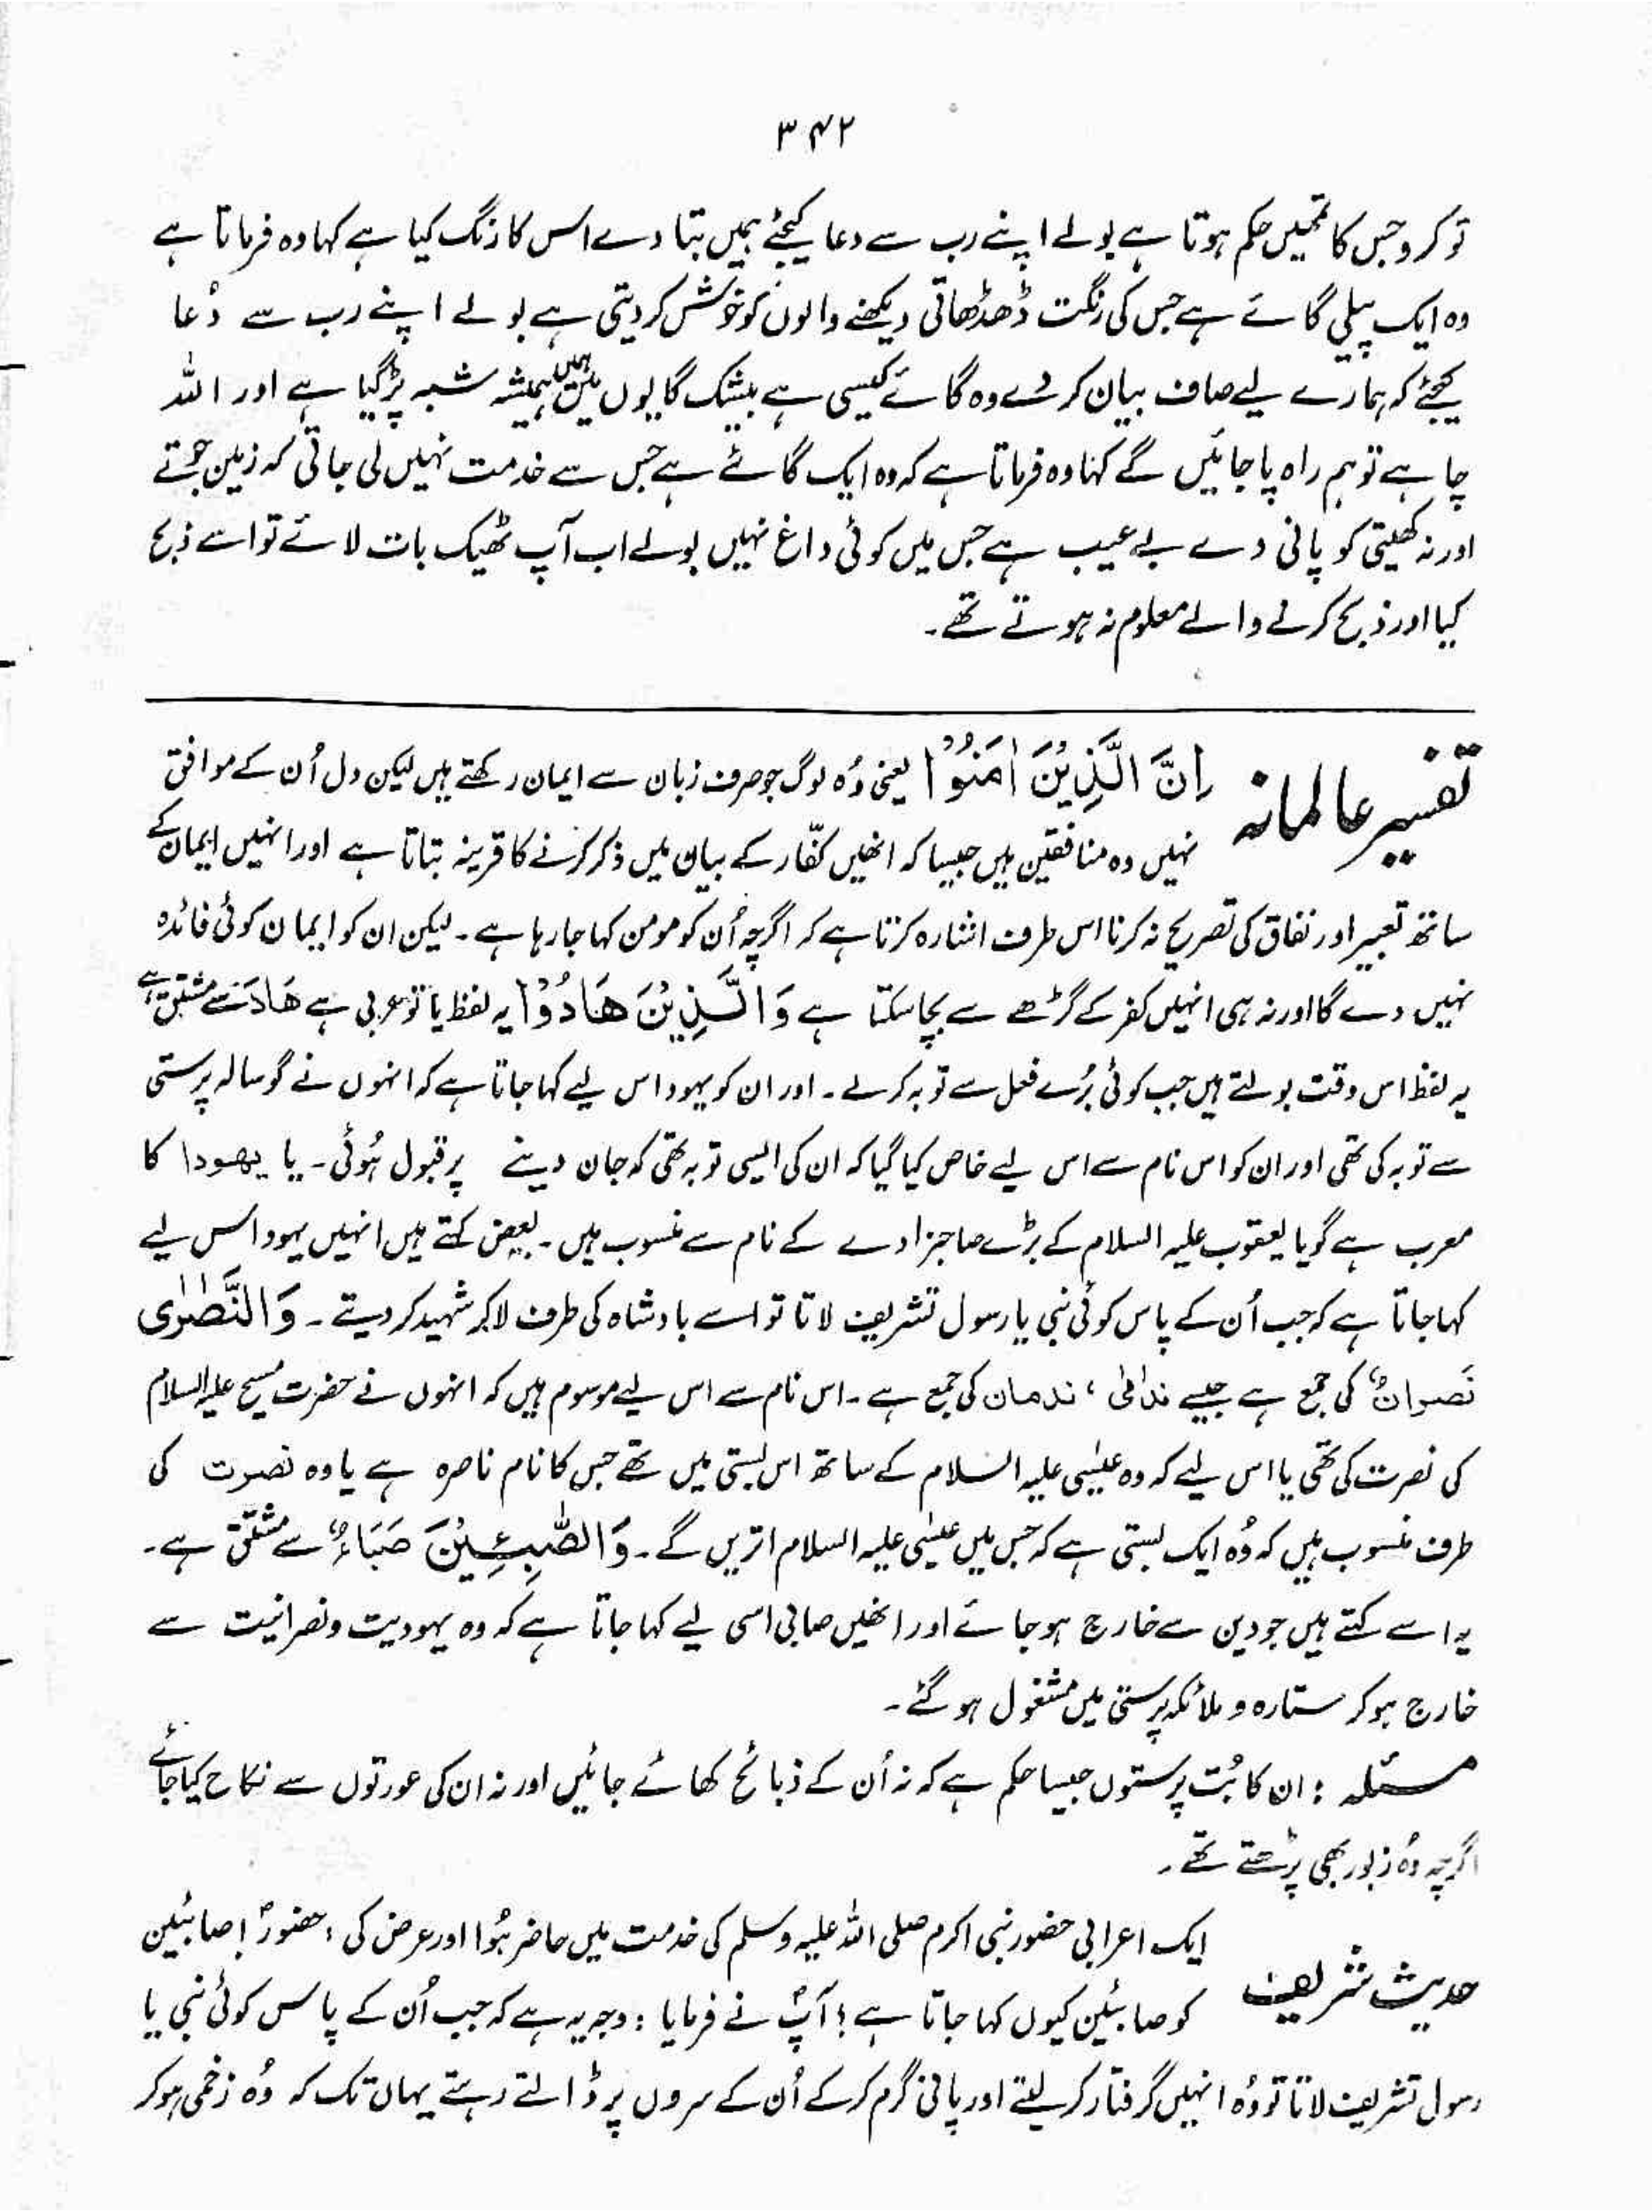 ۳۴۲
تو کرو جس کا تمھیں حکم ہوتا ہے بولے اپنے رب سے دعا کیجئے ہمیں بتا دے اس کا رنگ کیا ہے کہا وہ فرماتا ہے
وہ ایک پیلی گائے ہے جس کی رنگت ڈھڈھاتی دیکھنے والوں کو خوش کر دیتی ہے بولے اپنے رب سے دُعا
کیجئے کہ ہمارے لیے صاف بیان کر دے وہ گائے کیسی ہے بیشک گایوں میں ہمیں شبہ پڑ گیا ہے اور اللہ
چاہے تو ہم راہ پا جائیں گے کہا وہ فرماتا ہے کہ وہ ایک گائے ہے جس سے خدمت نہیں لی جاتی کہ زمین جوتے
اور نہ کھیتی کو پانی دے بے عیب ہے جس میں کوئی داغ نہیں بولے اب آپ ٹھیک بات لائے تو اسے ذبح
کیا اور ذبح کرنے والے معلوم نہ ہوتے تھے۔
تفسیر عالمانہ اِنَّ الَّذِیْنَ اٰمَنُوْا یعنی وُہ لوگ جو صرف زبان سے ایمان رکھتے ہیں لیکن دل اُن کے موافق
نہیں وہ منافقین ہیں جیسا کہ انھیں کفّار کے بیان میں ذکر کرنے کا قرینہ بتاتا ہے اور انہیں ایمان کے
ساتھ تعبیر اور نفاق کی تصریح نہ کرنا اس طرف اشارہ کرتا ہے کہ اگرچہ اُن کو مومن کہا جا رہا ہے۔ لیکن ان کو ایمان کوئی فائدہ
نہیں دے گا اور نہ ہی انہیں کفر کے گڑھے سے بچا سکتا ہے وَالَّذِیْنَ هَادُوْا یہ لفظ یا تو عربی ہے هَادَ سے مشتق ہے
یہ لفظ اس وقت بولتے ہیں جب کوئی بُرے فعل سے توبہ کرلے۔ اور ان کو یہود اس لیے کہا جاتا ہے کہ انہوں نے گوسالہ پرستی
سے توبہ کی تھی اور ان کو اس نام سے اس لیے خاص کیا گیا کہ ان کی ایسی توبہ تھی کہ جان دینے پر قبول ہُوئی۔ یا یھودا کا
معرب ہے گویا یعقوب علیہ السلام کے بڑے صاحبزادے کے نام سے منسوب ہیں۔ بعض کہتے ہیں انہیں یہود اس لیے
کہا جاتا ہے کہ جب اُن کے پاس کوئی نبی یا رسول تشریف لاتا تو اسے بادشاہ کی طرف لا کر شہید کر دیتے۔ وَالنَّصٰرٰی
نَصران کی جمع ہے جیسے ندامٰی، ندمان کی جمع ہے۔ اس نام سے اس لیے موسوم ہیں کہ انہوں نے حضرت مسیح علیہ السلام
کی نصرت کی تھی یا اس لیے کہ وہ عیسٰی علیہ السلام کے ساتھ اس بستی میں تھے جس کا نام ناصرہ ہے یا وہ نصرت کی
طرف منسوب ہیں کہ وُہ ایک بستی ہے کہ جس میں عیسٰی علیہ السلام اتریں گے۔ وَالصّٰبِـئِیْنَ صَبَاءٌ سے مشتق ہے۔
یہ اسے کہتے ہیں جو دین سے خارج ہو جائے اور انھیں صابی اسی لیے کہا جاتا ہے کہ وہ یہودیت و نصرانیت سے
خارج ہو کر ستارہ و ملائکہ پرستی میں مشغول ہو گئے۔
مسئلہ : ان کا بُت پرستوں جیسا حکم ہے کہ نہ اُن کے ذبائح کھائے جائیں اور نہ ان کی عورتوں سے نکاح کیا جائے
اگرچہ وُہ زبور بھی پڑھتے تھے۔
حدیث شریف ایک اعرابی حضور نبی اکرم صلی اللہ علیہ وسلم کی خدمت میں حاضر ہُوا اور عرض کی : حضورؐ! صابئین
کو صابئین کیوں کہا جاتا ہے؟ آپؐ نے فرمایا : وجہ یہ ہے کہ جب اُن کے پاس کوئی نبی یا
رسول تشریف لاتا تو وُہ انہیں گرفتار کر لیتے اور پانی گرم کر کے اُن کے سروں پر ڈالتے رہتے یہاں تک کہ وُہ زخمی ہو کر